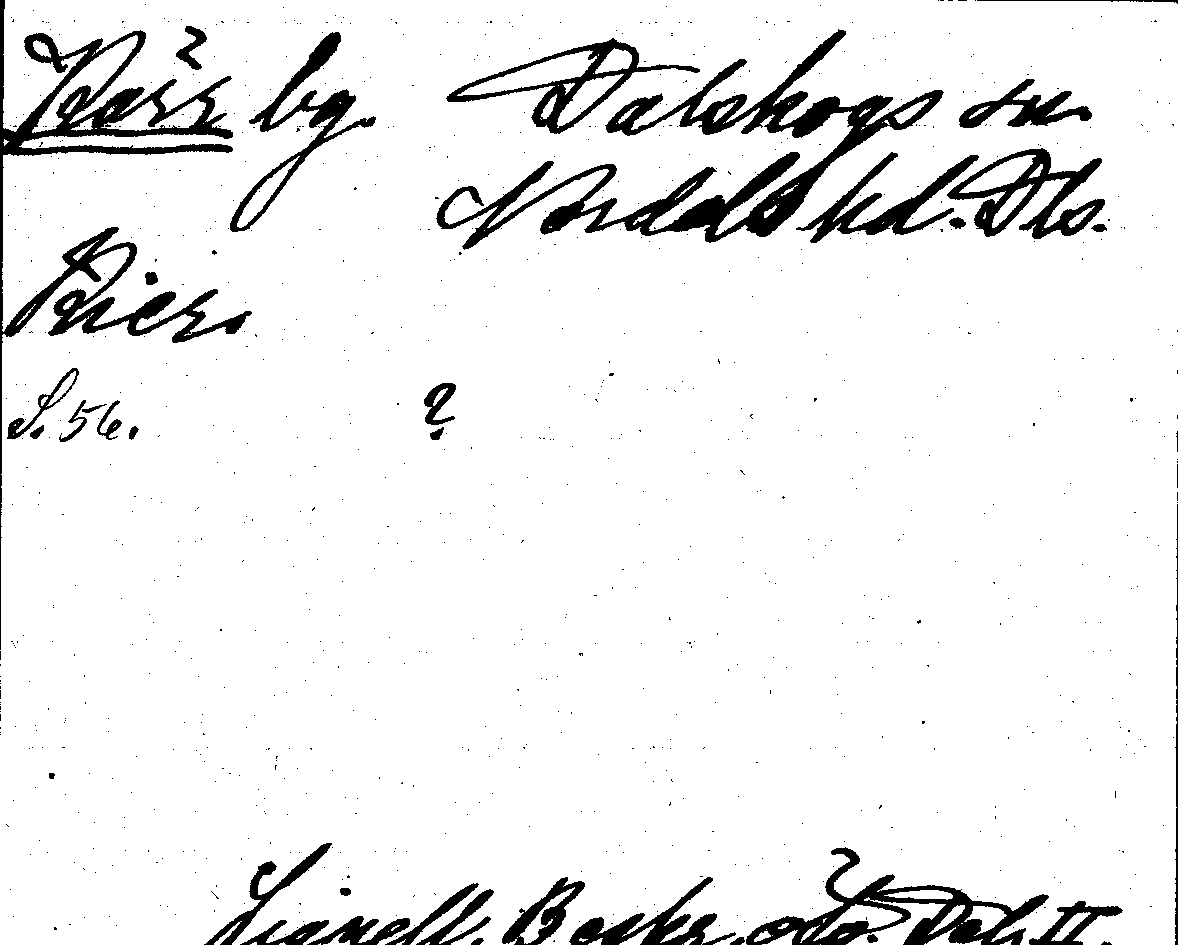 Kärr bg. Dalskogs sn.
Nordals hd. Dls.
Kier.
S. 56. ?
Lignell, Beskr. öfv. Dal. II.